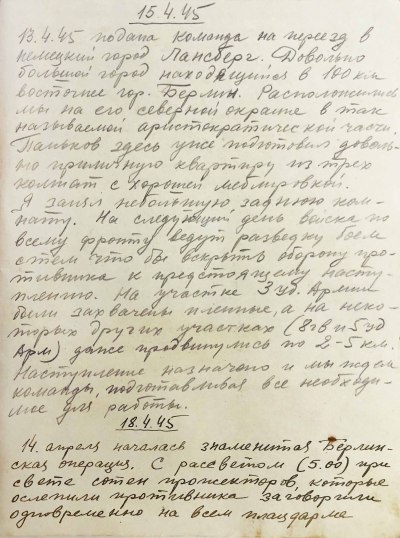 15.4.45
13.4.45 подана команда на переезд в
немецкий город Лансберг. Довольно
большой город находящийся в 100 км
восточнее гор. Берлин. Расположились
мы на его северной окраине в так
называемой аристократической части.
Паньков здесь уже подготовил доволь-
но приличную квартиру из трех
комнат с хорошей меблировкой.
Я занял небольшую заднюю ком-
нату. На следующий день войска по
всему фронту ведут разведку боем
с тем что бы вскрыть оборону про-
тивника к предстоящему насту-
плению. На участке 3 уд. Армии
были захвачены пленные, а на неко-
торых других участках (8 гв и 5 уд
Арм) даже продвинулись по 2-5 км.
Наступление назначено и мы ждем
команды, подготавливая все необходи-
мое для работы.
18.4.45
14. апреля началась знаменитая Берлин-
ская операция. С рассветом (5.00) при
свете сотен прожекторов, которые
ослепили противника заговорили
одновременно на всем плацдарме